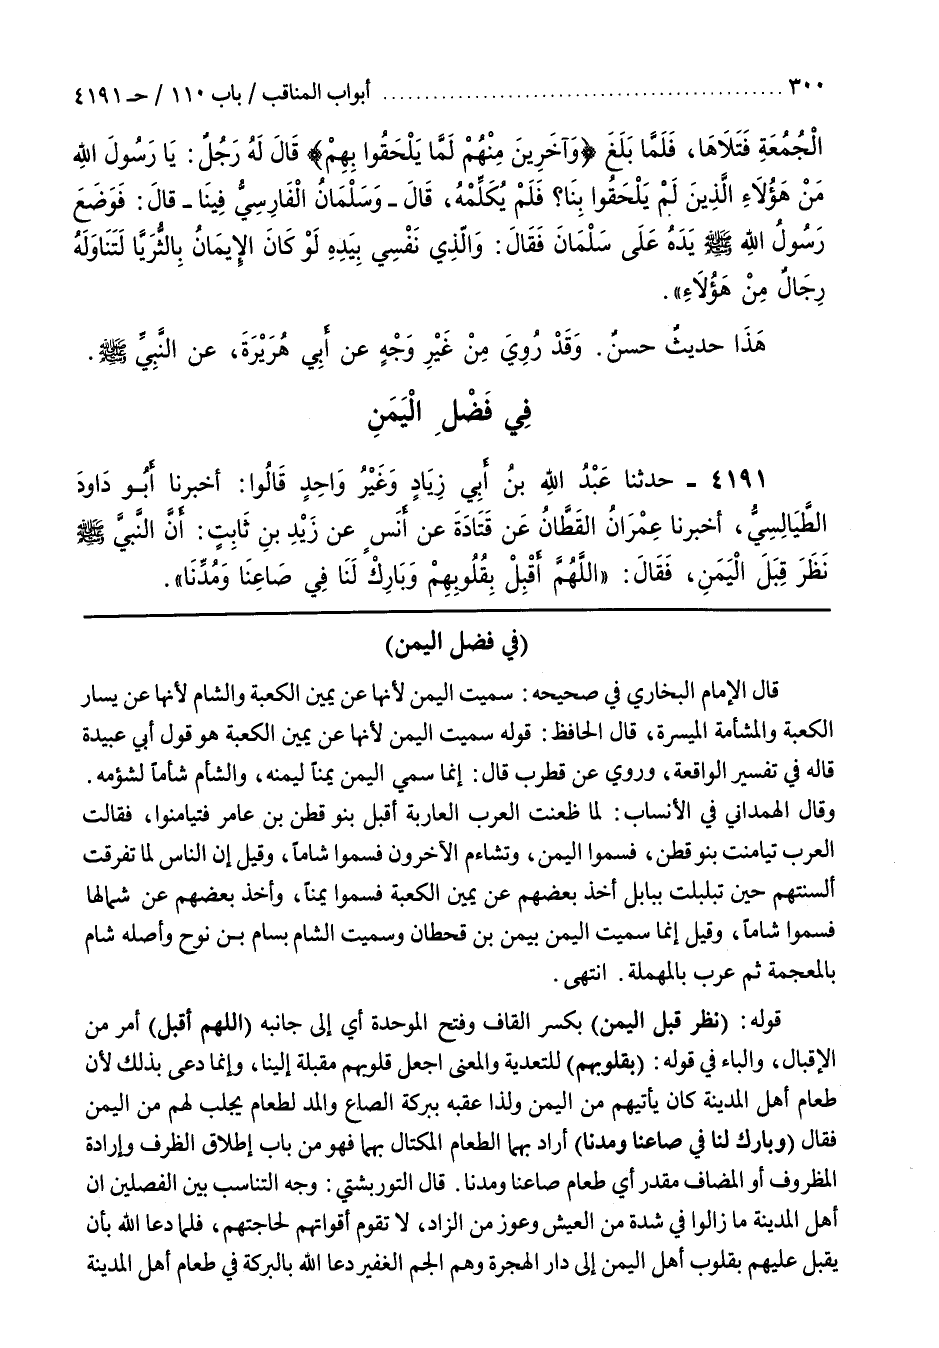 ٣٠٠ ........................ أبواب المناقب / باب ١١٠ / حـ ٤١٩١
الْجُمُعَةِ فَتَلَاهَا، فَلَمَّا بَلَغَ ﴿وَآخَرِينَ مِنْهُمْ لَمَّا يَلْحَقُوا بِهِمْ﴾ قَالَ لَهُ رَجُلٌ: يَا رَسُولَ اللهِ
مَنْ هَؤُلَاءِ الَّذِينَ لَمْ يَلْحَقُوا بِنَا؟ فَلَمْ يُكَلِّمْهُ، قَالَ ـ وَسَلْمَانُ الْفَارِسِيُّ فِينَا ـ قالَ: فَوَضَعَ
رَسُولُ اللهِ ﷺ يَدَهُ عَلَى سَلْمَانَ فَقَالَ: وَالَّذِي نَفْسِي بِيَدِهِ لَوْ كَانَ الإِيمَانُ بِالثُّرَيَّا لَتَنَاوَلَهُ
رِجَالٌ مِنْ هَؤُلَاءِ».
هَذَا حديثٌ حسنٌ. وَقَدْ رُوِيَ مِنْ غَيْرِ وَجْهٍ عن أبِي هُرَيْرَةَ، عن النَّبِيِّ ﷺ.
فِي فَضْلِ الْيَمَنِ
٤١٩١ ـ حدثنا عَبْدُ اللهِ بنُ أَبِي زِيَادٍ وَغَيْرُ وَاحِدٍ قَالُوا: أخبرنا أَبُو دَاودَ
الطَّيَالِسِيُّ، أخبرنا عِمْرَانُ القَطَّانُ عَن قَتَادَةَ عن أنَسٍ عن زَيْدِ بنِ ثَابِتٍ: أَنَّ النَّبِيَّ ﷺ
نَظَرَ قِبَلَ الْيَمَنِ، فَقَالَ: «اللَّهُمَّ أَقْبِلْ بِقُلُوبِهِمْ وَبَارِكْ لَنَا فِي صَاعِنَا وَمُدِّنَا».
(في فضل اليمن)
قال الإمام البخاري في صحيحه: سميت اليمن لأنها عن يمين الكعبة والشام لأنها عن يسار
الكعبة والمشأمة الميسرة، قال الحافظ: قوله سميت اليمن لأنها عن يمين الكعبة هو قول أبي عبيدة
قاله في تفسير الواقعة، وروي عن قطرب قال: إنما سمي اليمن يمناً ليمنه، والشأم شأماً لشؤمه.
وقال الهمداني في الأنساب: لما ظعنت العرب العاربة أقبل بنو قطن بن عامر فتيامنوا، فقالت
العرب تيامنت بنو قطن، فسموا اليمن، وتشاءم الآخرون فسموا شاماً، وقيل إن الناس لما تفرقت
ألسنتهم حين تبلبلت ببابل أخذ بعضهم عن يمين الكعبة فسموا يمناً، وأخذ بعضهم عن شمالها
فسموا شاماً، وقيل إنما سميت اليمن بيمن بن قحطان وسميت الشام بسام بـن نوح وأصله شام
بالمعجمة ثم عرب بالمهملة. انتهى.
قوله: (نظر قبل اليمن) بكسر القاف وفتح الموحدة أي إلى جانبه (اللهم أقبل) أمر من
الإقبال، والباء في قوله: (بقلوبهم) للتعدية والمعنى اجعل قلوبهم مقبلة إلينا، وإنما دعى بذلك لأن
طعام أهل المدينة كان يأتيهم من اليمن ولذا عقبه ببركة الصاع والمد لطعام يجلب لهم من اليمن
فقال (وبارك لنا في صاعنا ومدنا) أراد بهما الطعام المكتال بهما فهو من باب إطلاق الظرف وإرادة
المظروف أو المضاف مقدر أي طعام صاعنا ومدنا. قال التوربشتي: وجه التناسب بين الفصلين ان
أهل المدينة ما زالوا في شدة من العيش وعوز من الزاد، لا تقوم أقواتهم لحاجتهم، فلما دعا الله بأن
يقبل عليهم بقلوب أهل اليمن إلى دار الهجرة وهم الجم الغفير دعا الله بالبركة في طعام أهل المدينة